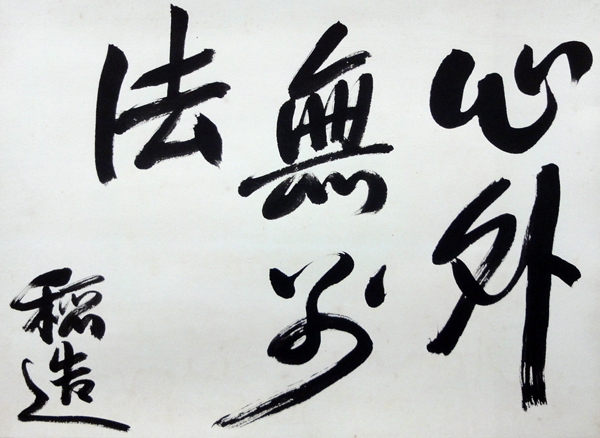 心外
無別
法
稲造